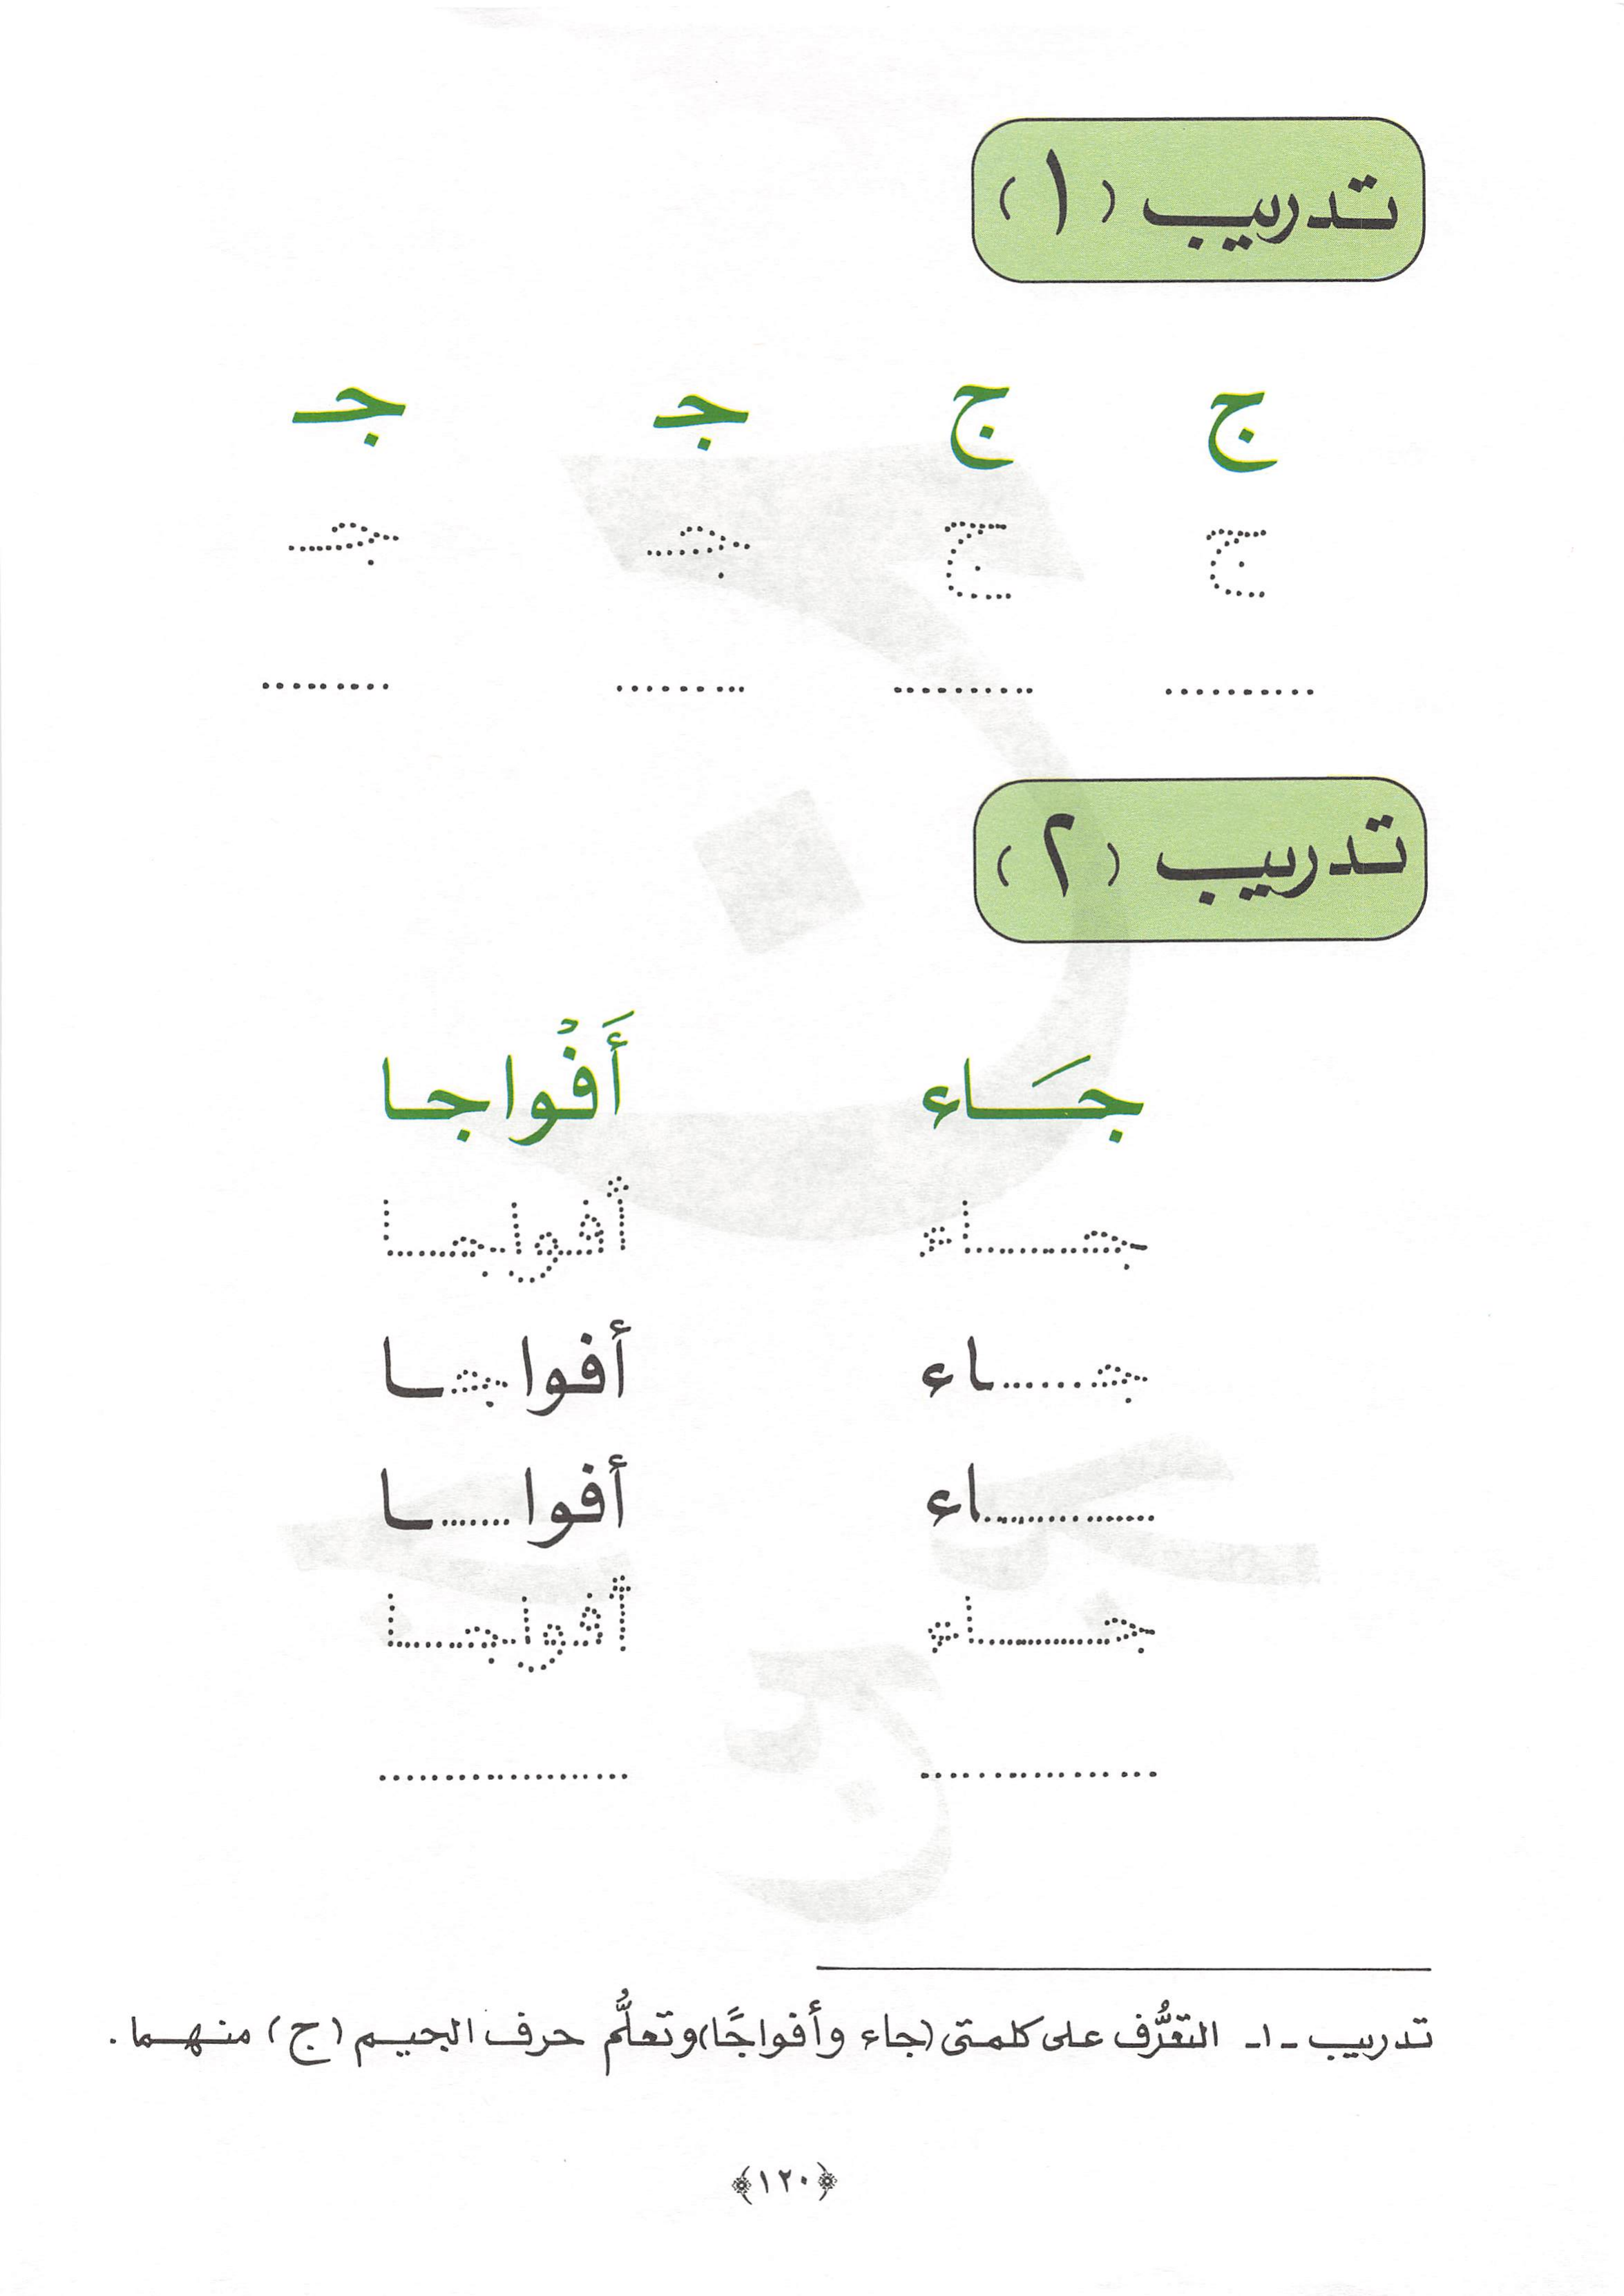 تدريب (١)
ج ج جـ جـ
ج ج جـ جـ
.......... .......... ......... .........
تدريب (٢)
جَـاء أَفْواجا
جـاء أفواجا
جـ......ـاء أفواجـا
............ـاء أفوا.......ـا
جـاء أفواجا
.................. ...................
تدريب -١- التعرُّف على كلمتى (جاء وأفواجًا) وتعلُّم حرف الجيم (ج) منهما.
﴿١٢٠﴾